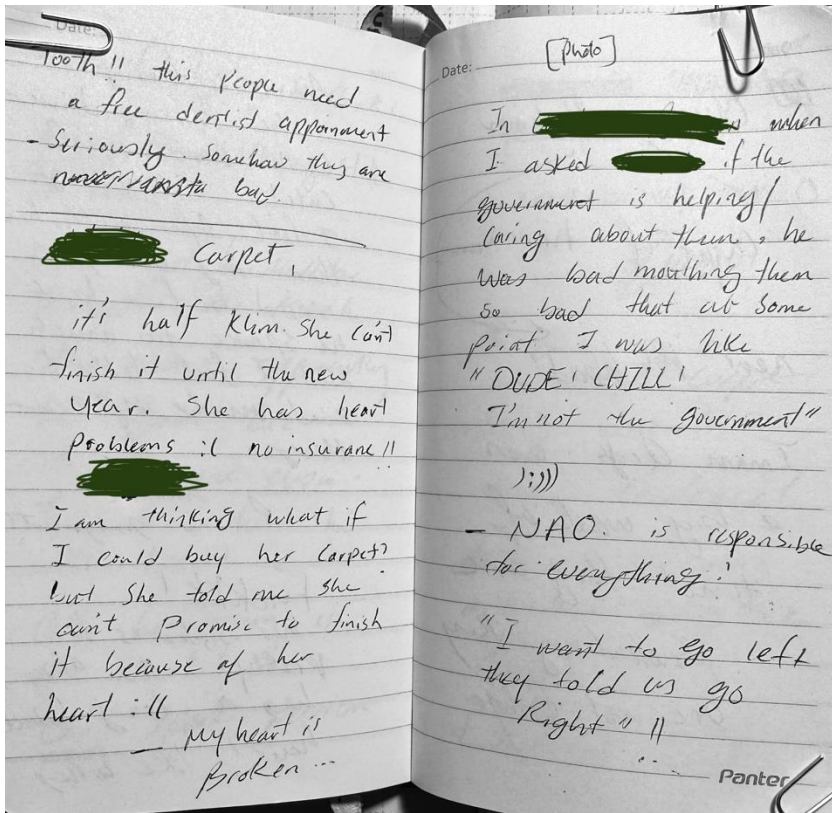 Date:
Tooth!! this People need
a free dentist appoinment
- Seriously. Somehow they are
bad.
Carpet,
it's half Klim. She can't
finish it until the new
Year. She has heart
Problems :( no insurane!!
I am thinking what if
I could buy her Carpet?
but She told me She
can't Promise to finish
it because of her
heart :((
— My heart is
Broken ...
[Photo]
Date:
In when
I asked if the
government is helping/
Caring about them, he
was bad mouthing them
so bad that at Some
Point I was like
"DUDE! CHILL!
I'm not the government"
);)))
— NAO. is responsible
for everything!
"I want to go left
they told us go
Right" !!
Panter